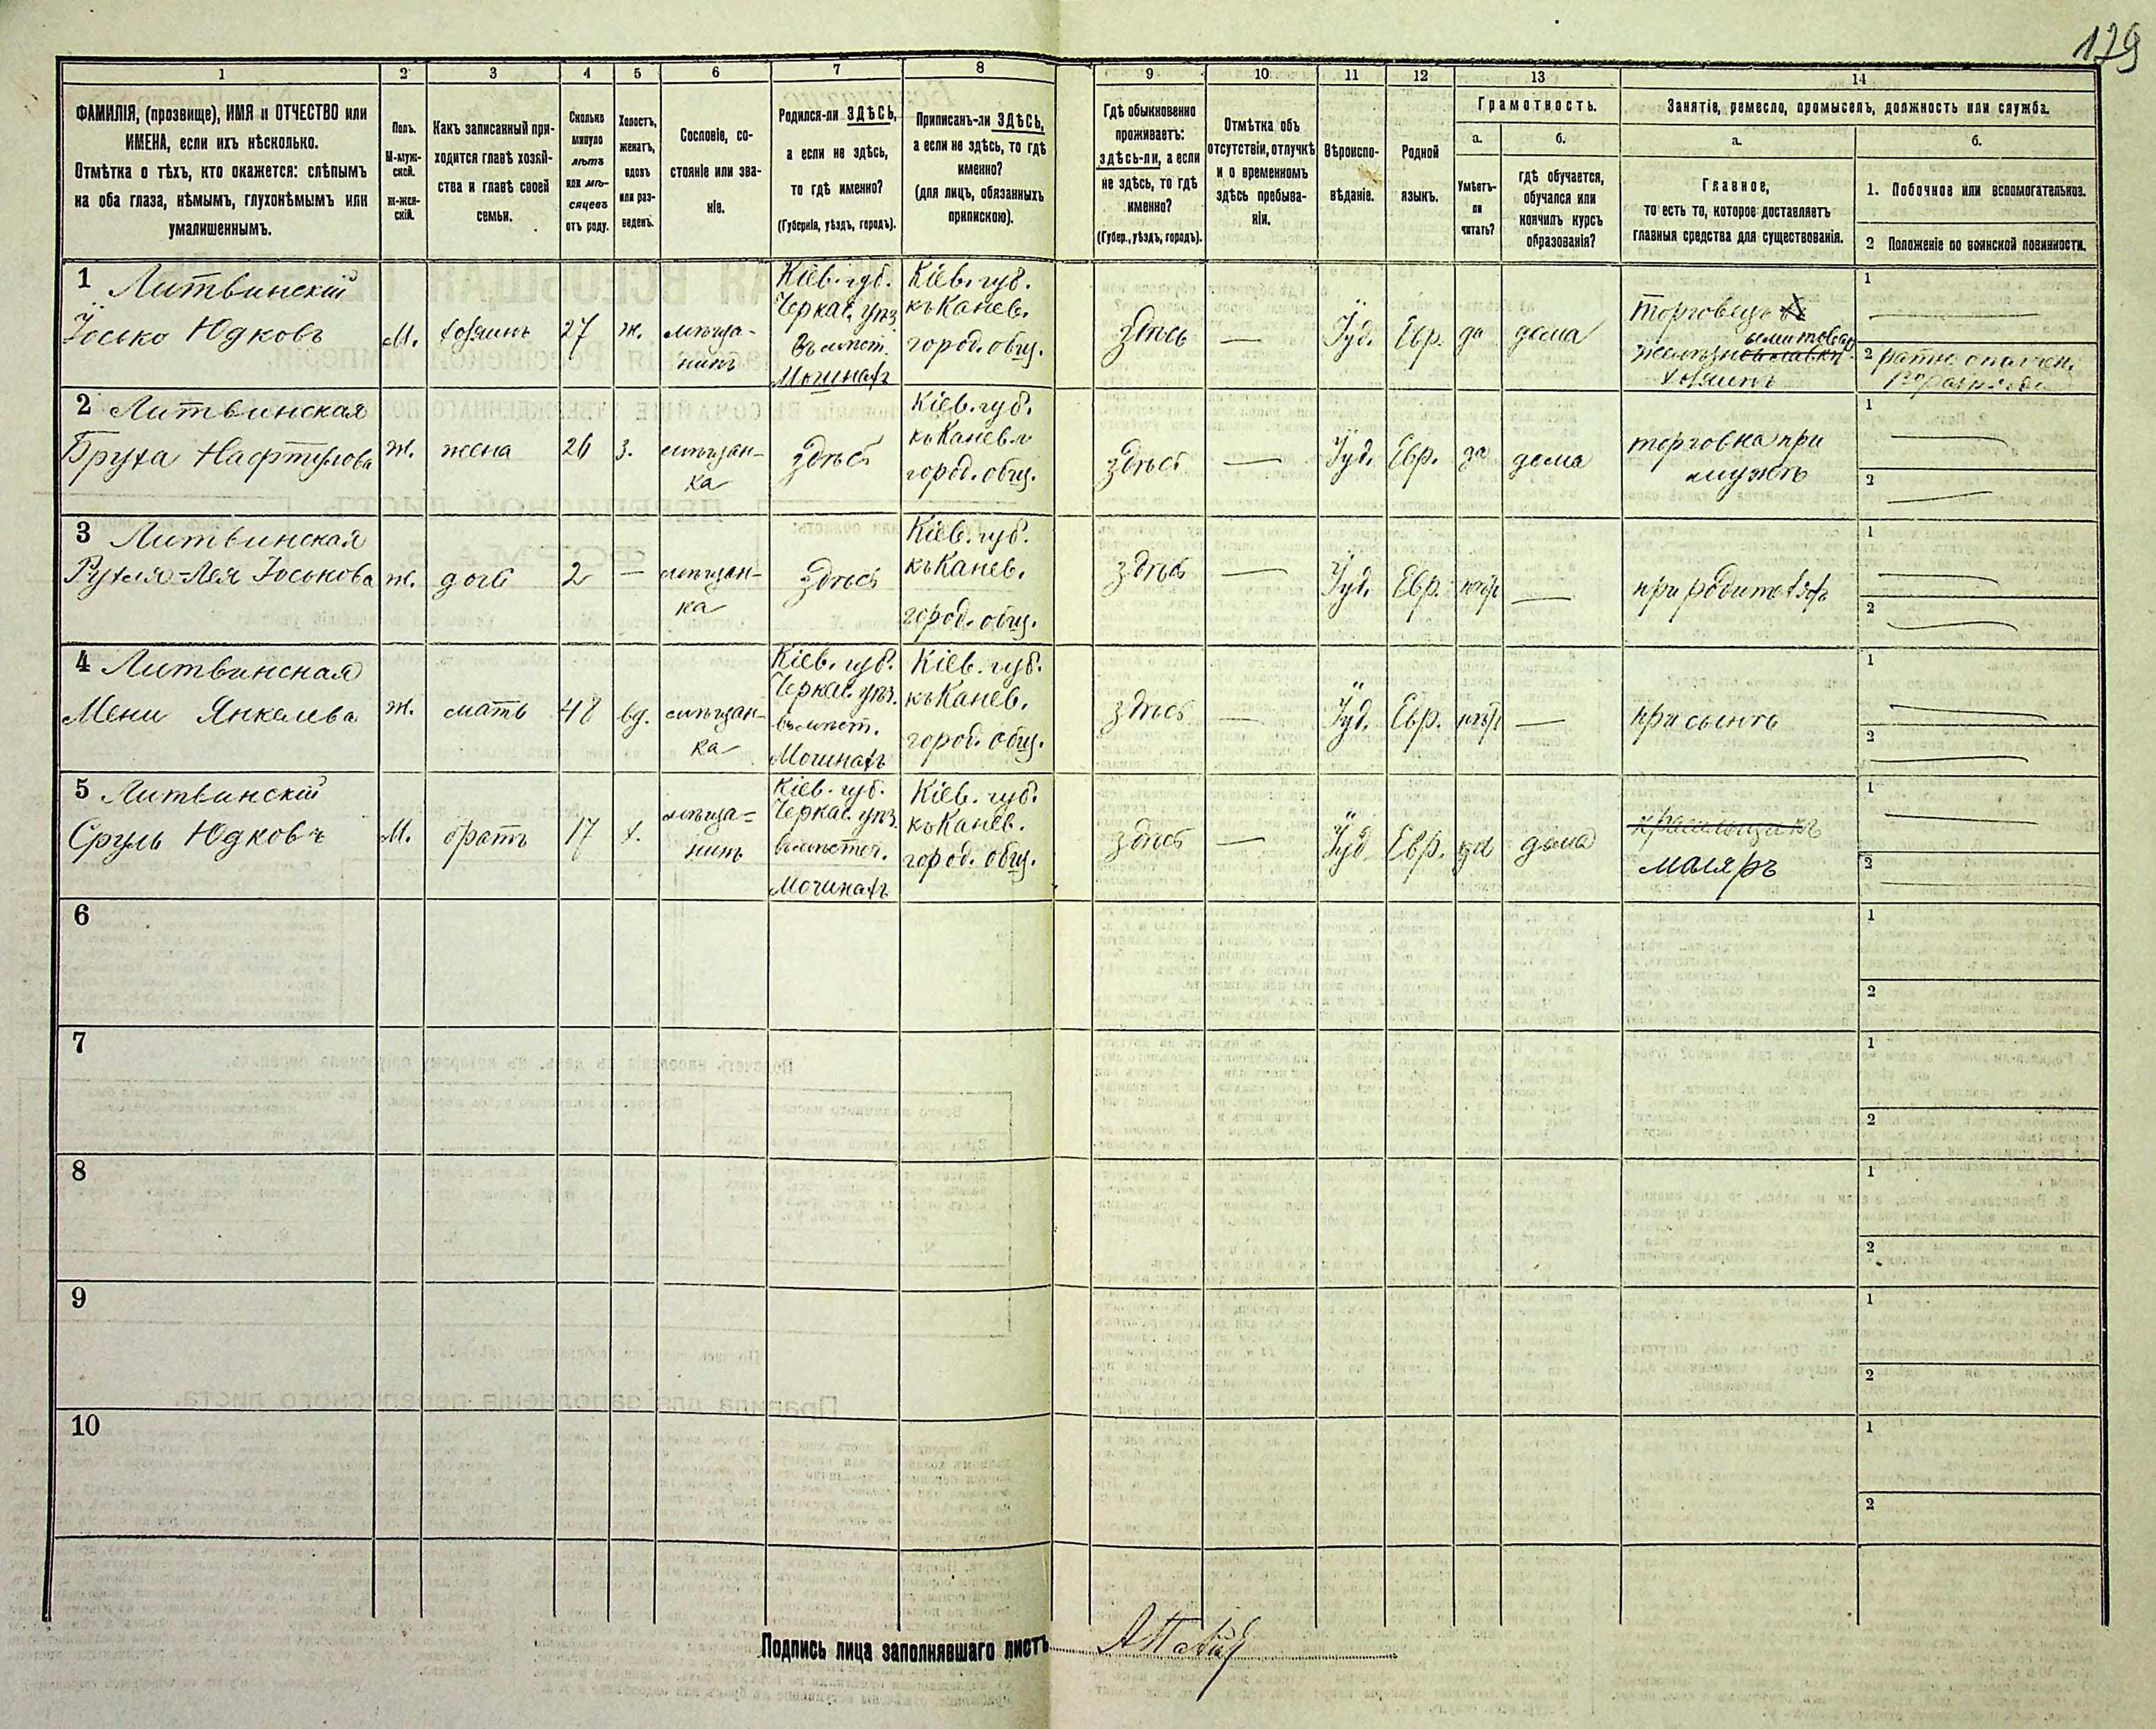 179
1 2 3 4 5 6 7 8 9 10 11 12 13 14
ФАМИЛІЯ, (прозвище), ИМЯ и ОТЧЕСТВО или
ИМЕНА, если ихъ нѣсколько.
Отмѣтка о тѣхъ, кто окажется: слѣпымъ
на оба глаза, нѣмымъ, глухонѣмымъ или
умалишеннымъ.
Полъ.
М-муж-
ской.
ж-жен-
скій.
Какъ записанный при-
ходится главѣ хозяй-
ства и главѣ своей
семьи.
Сколько
минуло
лѣтъ
или мѣ-
сяцевъ
отъ роду.
Холостъ,
женатъ,
вдовъ
или раз-
веденъ.
Сословіе, со-
стояніе или зва-
ніе.
Родился-ли ЗДѢСЬ,
а если не здѣсь,
то гдѣ именно?
(Губернія, уѣздъ, городъ).
Приписанъ-ли ЗДѢСЬ,
а если не здѣсь, то гдѣ
именно?
(для лицъ, обязанныхъ
припискою).
Гдѣ обыкновенно
проживаетъ:
здѣсь-ли, а если
не здѣсь, то гдѣ
именно?
(Губер., уѣздъ, городъ).
Отмѣтка объ
отсутствіи, отлучкѣ
и о временномъ
здѣсь пребыва-
ніи.
Вѣроиспо-
вѣданіе.
Родной
языкъ.
Грамотность.
а.
Умѣетъ-
ли
читать?
б.
гдѣ обучается,
обучался или
кончилъ курсъ
образованія?
Занятіе, ремесло, промыселъ, должность или служба.
а.
Главное,
то есть то, которое доставляетъ
главныя средства для существованія.
б.
1. Побочное или вспомогательное.
2 Положеніе по воинской повинности.
1 Литвинскій
Іосько Юдковъ
М.
хозяинъ
27
ж.
мѣща-
нинъ
Кіев. губ.
Черкас. уѣз.
въ мѣст.
Мошнахъ
Кіев. губ.
къ Канев.
город. общ.
Здѣсь
—
Іуд.
Евр.
да
дома
торговецъ
хозяинъ
1 —
2 ратн. ополчен.
2 Литвинская
Бруха Нафтулова
ж.
жена
26
з.
мѣщан-
ка
здѣсь
Кіев. губ.
къ Канев.
город. общ.
здѣсь
—
Іуд.
Евр.
да
дома
торговка при
мужѣ
1 —
2 —
3 Литвинская
Рухля-Лея Іоськова
ж.
дочь
2
—
мѣщан-
ка
здѣсь
Кіев. губ.
къ Канев.
город. общ.
здѣсь
—
Іуд.
Евр.
нѣтъ
—
при родителяхъ
1 —
2 —
4 Литвинская
Мени Янкелева
ж.
мать
48
вд.
мѣщан-
ка
Кіев. губ.
Черкас. уѣз.
въ мѣст.
Мошнахъ
Кіев. губ.
къ Канев.
город. общ.
здѣсь
—
Іуд.
Евр.
нѣтъ
—
при сынѣ
1 —
2 —
5 Литвинскій
Сруль Юдковъ
М.
братъ
17
х.
мѣща-
нинъ
Кіев. губ.
Черкас. уѣз.
въ мѣстеч.
Мошнахъ
Кіев. губ.
къ Канев.
город. общ.
здѣсь
—
Іуд.
Евр.
да
дома
маляръ
1 —
2 —
6
1
2
7
1
2
8
1
2
9
1
2
10
1
2
Подпись лица заполнявшаго листъ